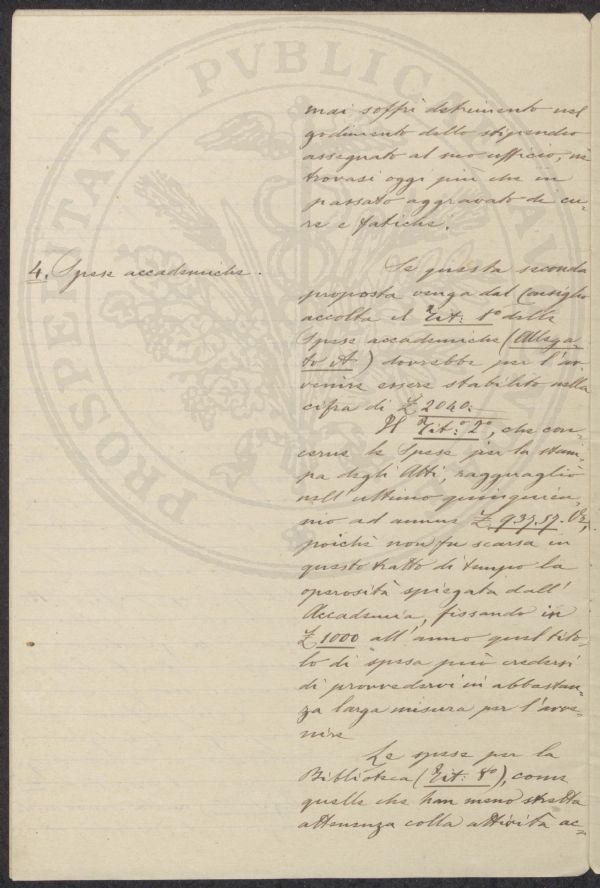 PROSPERITATI PVBLICAE AV
mai soffrì detrimento nel
godimento dello stipendio
assegnato al suo ufficio, nè
trovasi oggi più che in
passato aggravato di cu-
re e fatiche.
4. Spese accademiche.
Se questa seconda
proposta venga dal Consiglio
accolta il Tit: 1º delle
Spese accademiche (Allega-
to A) dovrebbe per l'av-
venire essere stabilito nella
cifra di £ 2040.
Il Tit: 2º, che con-
cerne le Spese per la stam-
pa degli Atti, ragguagliò
nell'ultimo quinquen-
nio ad annue £ 937,57. Or,
poichè non fu scarsa in
questo tratto di tempo la
operosità spiegata dall'
Accademia, fissando in
£ 1000 all'anno quel tito-
lo di spesa può credersi
di provvedervi in abbastan-
za larga misura per l'avve-
nire
Le spese per la
Biblioteca (Tit: 8º), come
quelle che han meno stretta
attenenza colla attività ac-